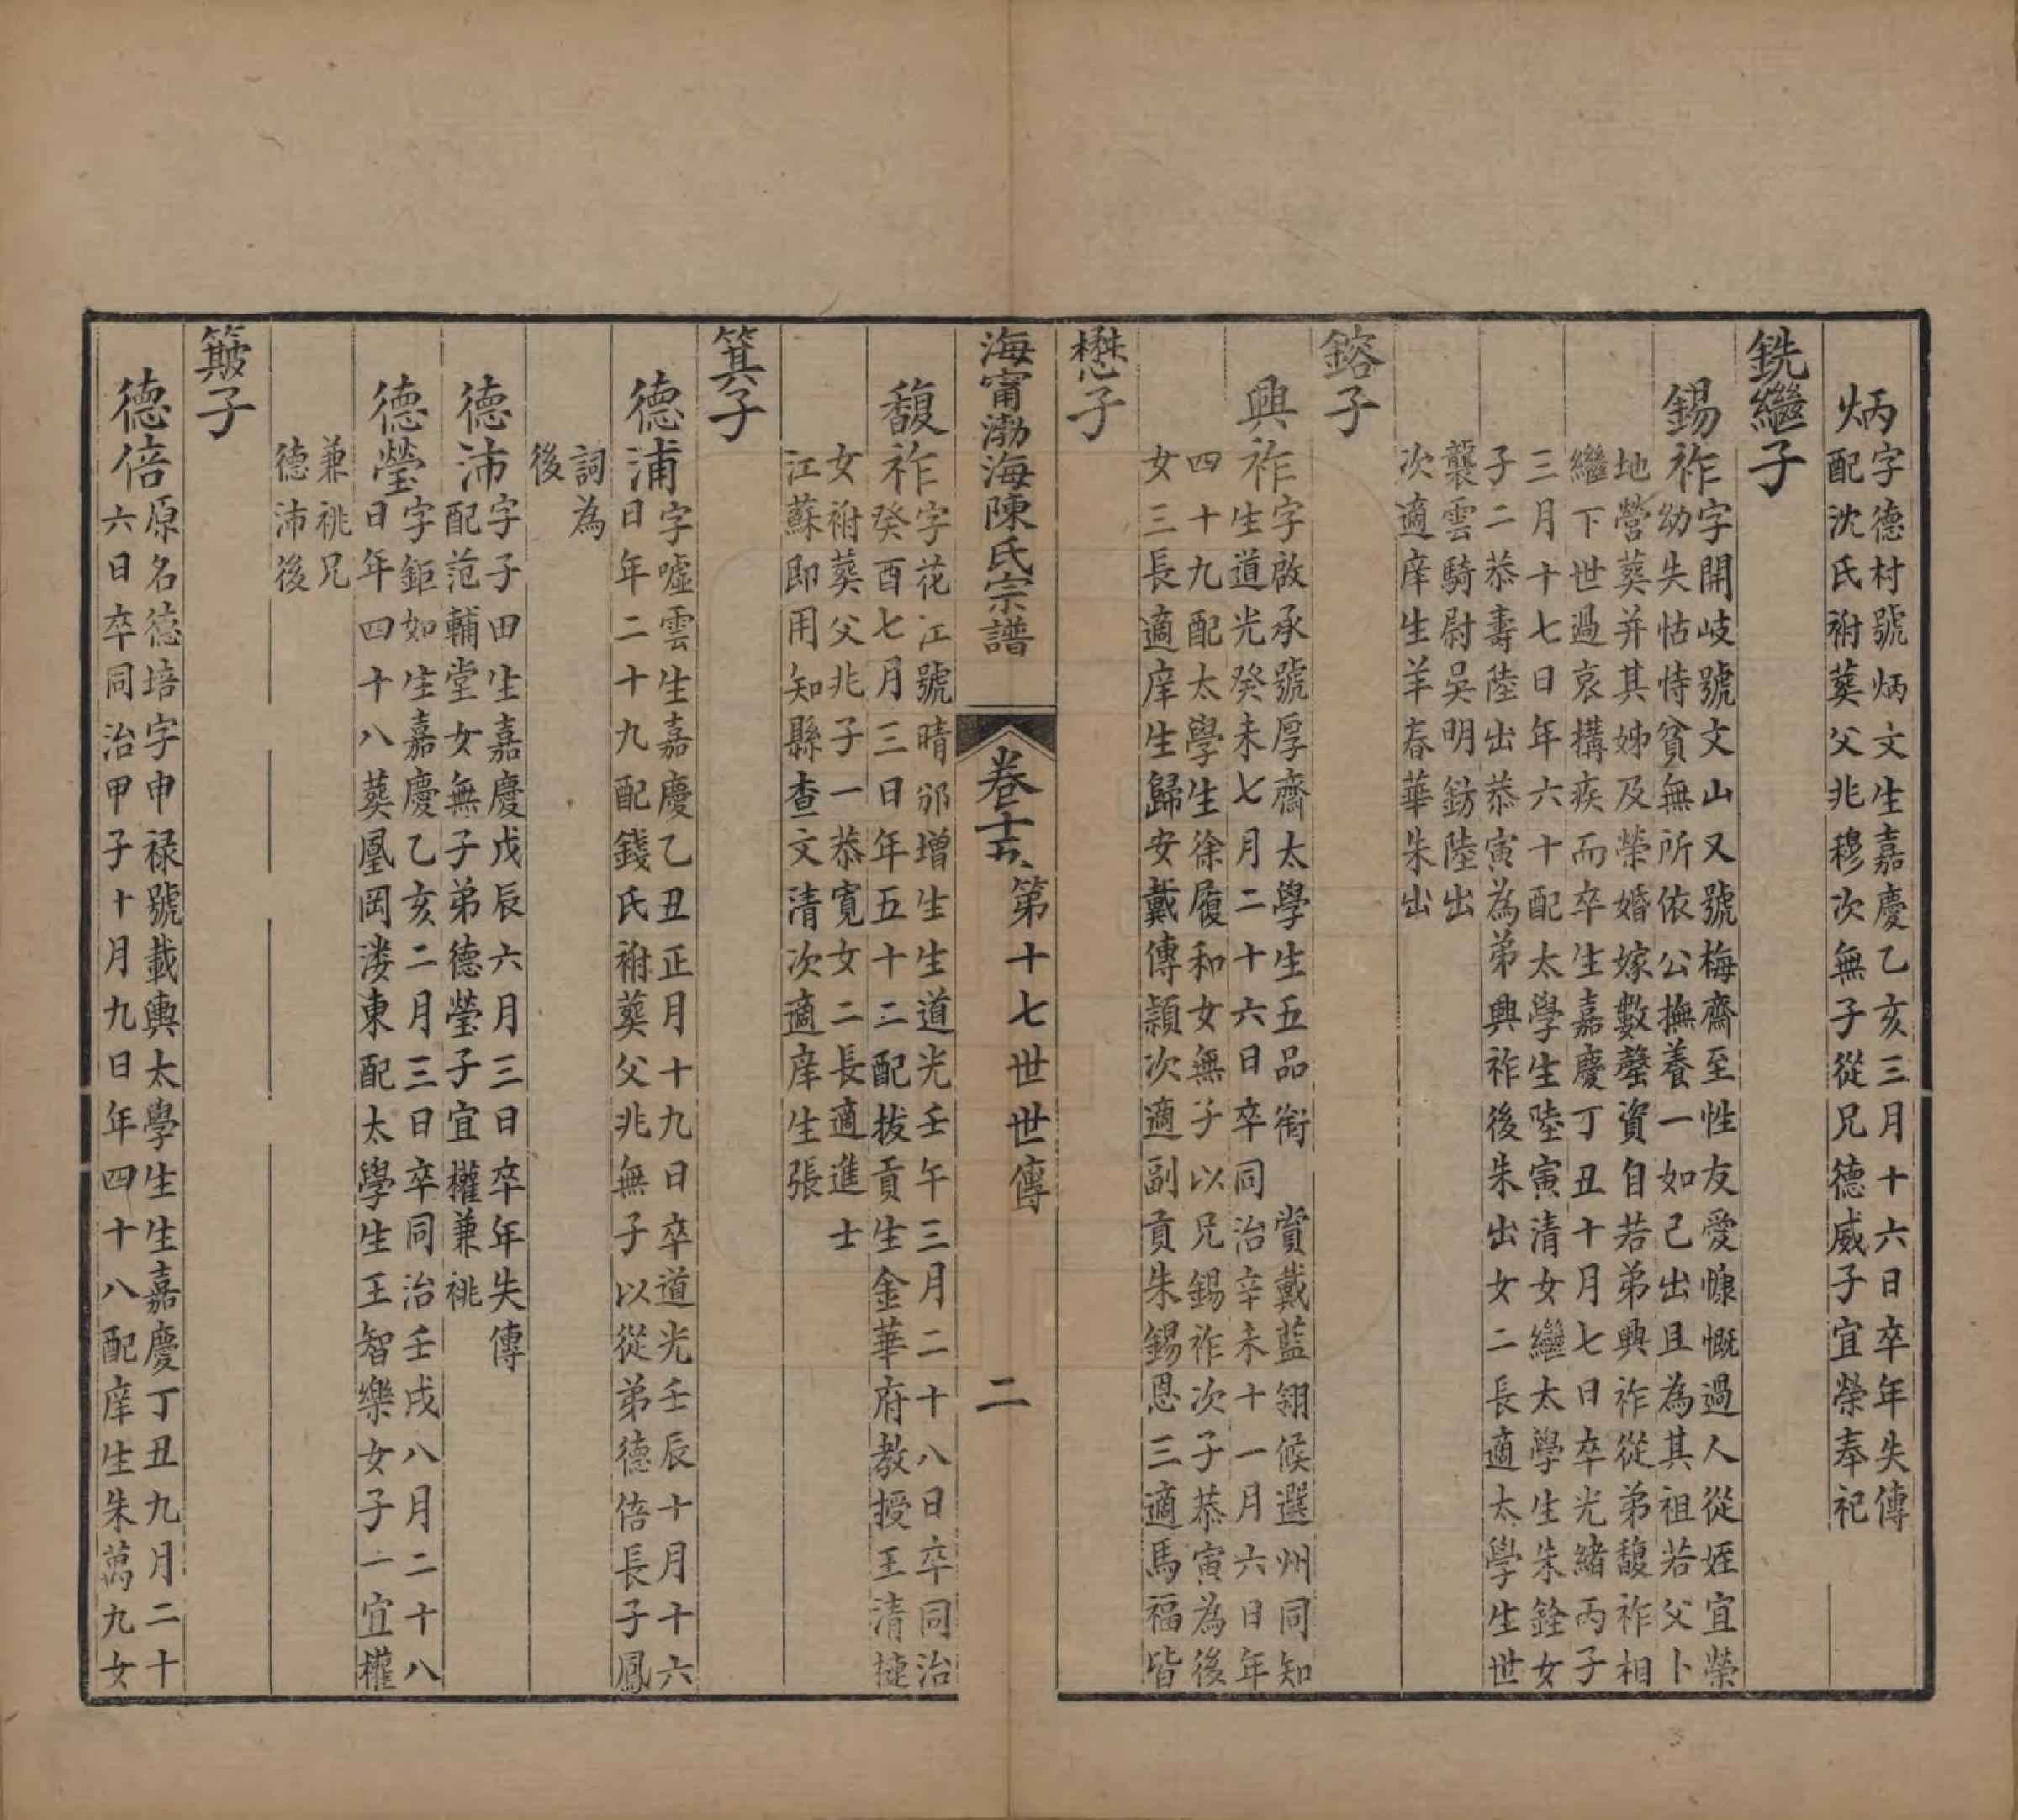 炳
字德村號炳文生嘉慶乙亥三月十六日卒年失傳
配沈氏祔葬父兆穆次無子從兄德威子宜榮奉祀
銑繼子
錫祚
字開岐號文山又號梅齋至性友愛慷慨過人從姪宜榮
幼失怙恃貧無所依公撫養一如己出且為其祖若父卜
地營葬并其姊及榮婚嫁數罄資自若弟興祚從弟馥祚相
繼下世過哀搆疾而卒生嘉慶丁丑十月七日卒光緒丙子
三月十七日年六十配太學生陸寅清女繼太學生朱銓女
子二恭壽陸出恭寅為弟興祚後朱出女二長適太學生世
襲雲騎尉吳明鈁陸出
次適庠生羊春華朱出
鎔子
興祚
字啟承號厚齋太學生五品銜 賞戴藍翎候選州同知
生道光癸未七月二十六日卒同治辛未十一月六日年
四十九配太學生徐履和女無子以兄錫祚次子恭寅為後
女三長適庠生歸安戴傳頴次適副貢朱錫恩三適馬福皆
懋子
海甯渤海陳氏宗譜
卷二十五 第十七世世傳
二
馥祚
字花江號晴邠增生生道光壬午三月二十八日卒同治
癸酉七月三日年五十二配拔貢生金華府教授王清㨗
女祔葬父兆子一恭寬女二長適進士
江蘇即用知縣查文清次適庠生張
箕子
德浦
字噓雲生嘉慶乙丑正月十九日卒道光壬辰十月十六
日年二十九配錢氏祔葬父兆無子以從弟德倍長子鳳
詞為
後
德沛
字子田生嘉慶戊辰六月三日卒年失傳
配范輔堂女無子弟德瑩子宜權兼祧
德瑩
字鉅如生嘉慶乙亥二月三日卒同治壬戌八月二十八
日年四十八葬凰岡漊東配太學生王智樂女子一宜權
兼祧兄
德沛後
簸子
德倍
原名德培字申祿號載輿太學生生嘉慶丁丑九月二十
六日卒同治甲子十月九日年四十八配庠生朱萬九女